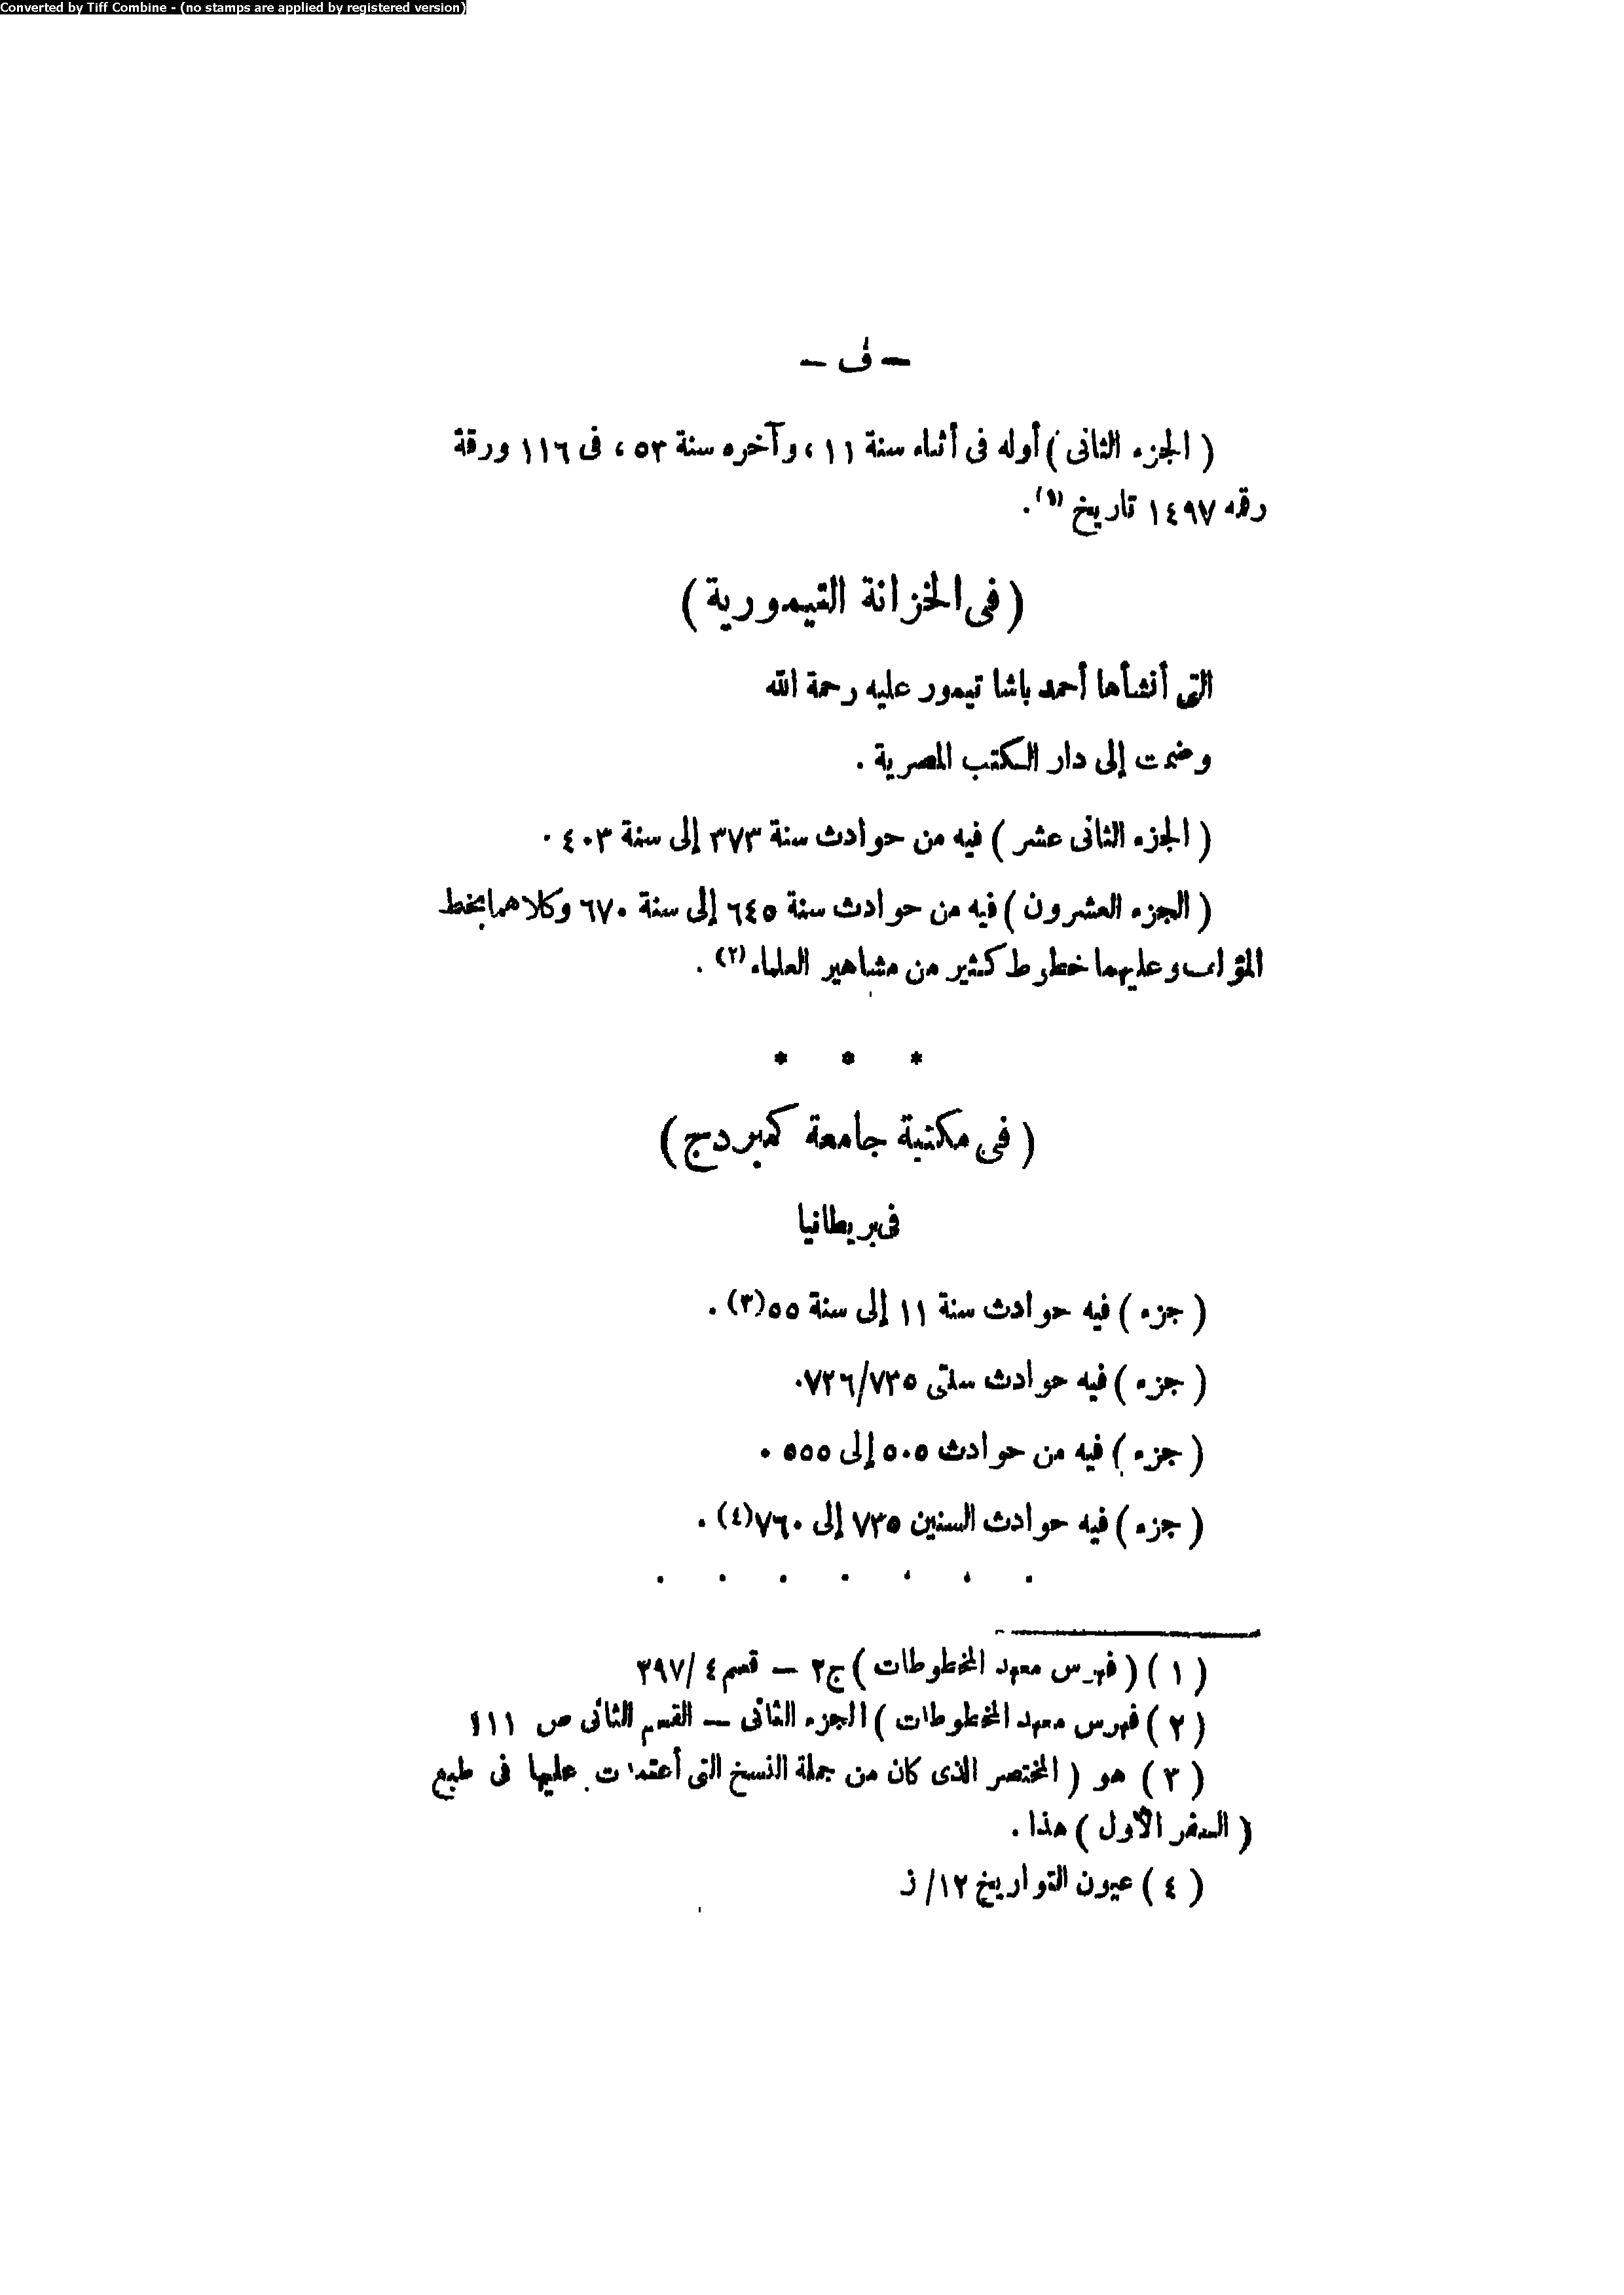 Converted by Tiff Combine - (no stamps are applied by registered version)
— ف —
( الجزء الثانى ) أوله فى أثناء سنة ١١ ، وآخره سنة ٥٣ ، فى ١١٦ ورقة
رقمه ١٤٩٧ تاريخ (١) .
( فى الخزانة التيمورية )
التى أنشأها أحمد باشا تيمور عليه رحمة الله
وضمت إلى دار الكتب المصرية .
( الجزء الثانى عشر ) فيه من حوادث سنة ٣٧٣ إلى سنة ٤٠٣ .
( الجزء العشرون ) فيه من حوادث سنة ٦٤٥ إلى سنة ٦٧٠ وكلاهما بخط
المؤلف وعليهما خطوط كثير من مشاهير العلماء (٢) .
* * *
( فى مكتبة جامعة كمبردج )
فى بريطانيا
( جزء ) فيه حوادث سنة ١١ إلى سنة ٥٥ (٣) .
( جزء ) فيه حوادث سنتى ٧٢٦/٧٣٥ .
( جزء ) فيه من حوادث ٥٠٥ إلى ٥٥٥ .
( جزء ) فيه حوادث السنين ٧٣٥ إلى ٧٦٠ (٤) .
. . . . . . .
( ١ ) ( فهرس معهد المخطوطات ) ج٢ — قسم ٤ /٣٩٧
( ٢ ) فهرس معهد المخطوطات ) الجزء الثانى — القسم الثانى ص ١١١
( ٣ ) هو ( المختصر الذى كان من جملة النسخ التى أعتمدت عليها فى طبع
( السفر الأول ) هذا .
( ٤ ) عيون التواريخ ١٢/ ز